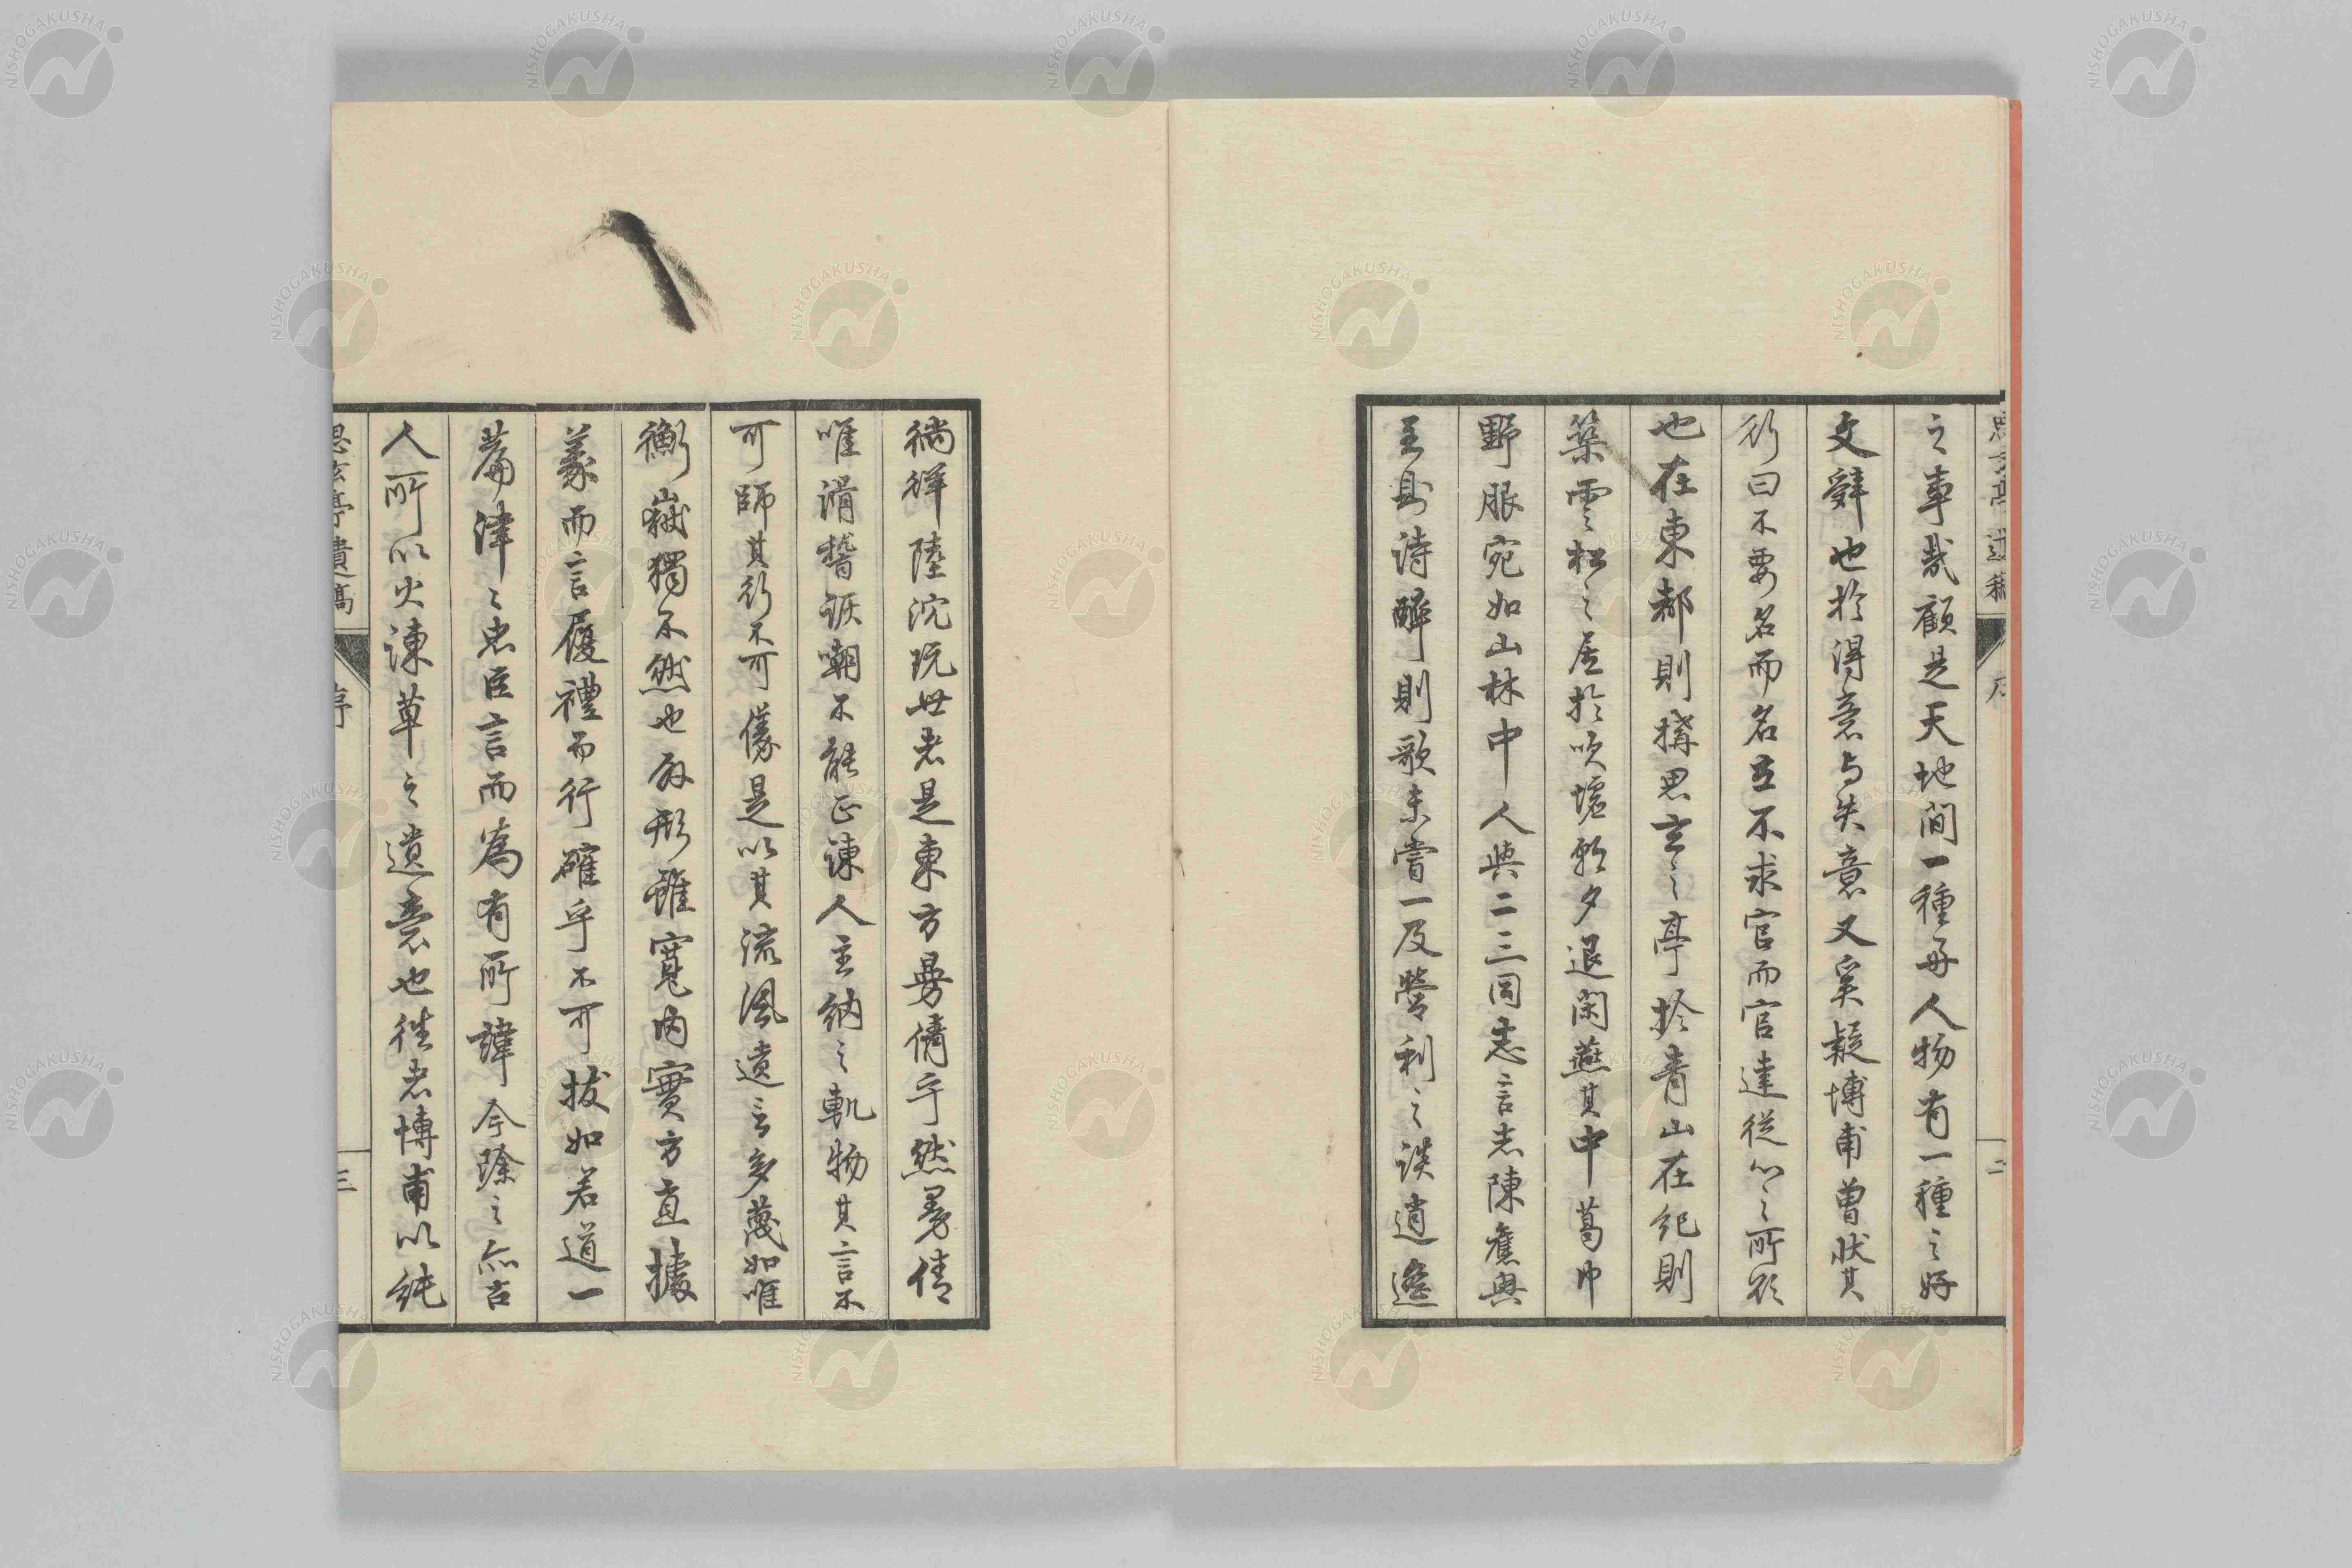 之事哉顧是天地間一種毋人物有一種之好
文辭也於得意与失意又奚疑博甫曾狀其
行曰不要名而名至不求官而官達從心之所欲
也在東都則搆思玄之亭於青山在紀則
築雪松之居於吹墟朝夕退閑燕其中葛巾
野服宛如山林中人與二三同志言志陳舊興
至則詩酣則歌未嘗一及營利之談逍遙
徜徉陸沈玩世者是東方曼倩乎然曼倩
唯滑稽詼嘲不能正諫人主納之軌物其言不
可師其行不可儀是以其流風遺言多蔑如唯
衡嶽獨不然也故形雖寬内實方直據
義而言履禮而行確乎不可拔如若道一
篇諄々忠臣言而為有所諱今除之亦古
人所以火諫草之遺意也往者博甫以純
思玄亭遺稿
序
二
思玄亭遺稿
序
三
NISHOGAKUSHA